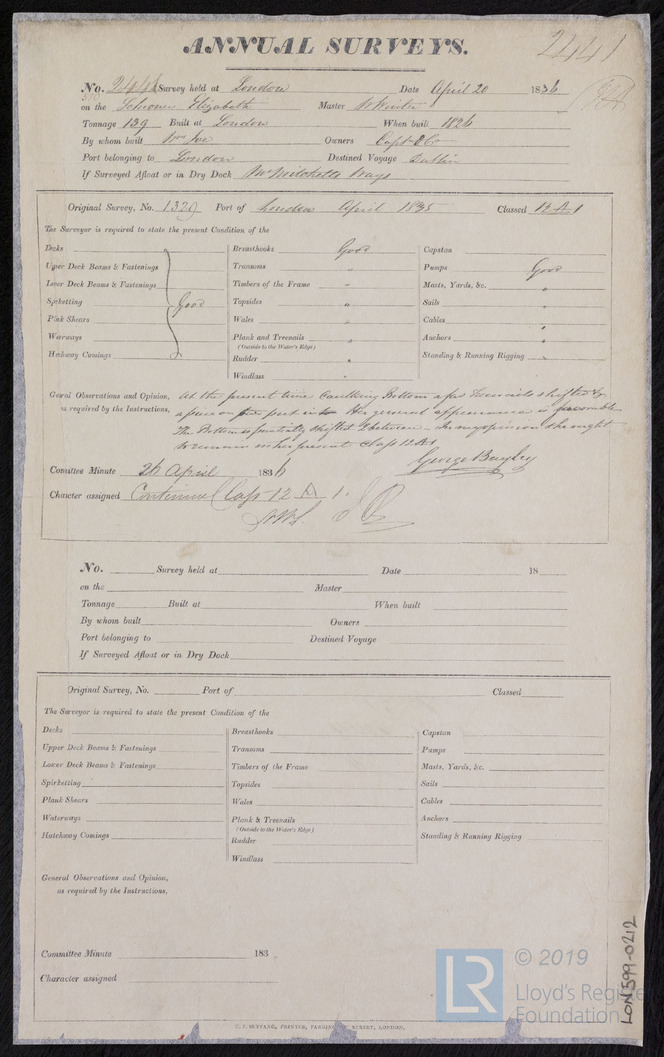 2441
ANNUAL SURVEYS.
No. 2441 Survey held at London Date April 20 1836
on the Schooner Elizabeth Master
Tonnage 139 Built at London When built 1826
By whom built Owners Capt & Co
Port belonging to London Destined Voyage Dublin
If Surveyed Afloat or in Dry Dock Mr Mitchells Ways
Original Survey, No. 1329 Port of London April 1835 Classed 12 A 1
The Surveyor is required to state the present Condition of the
Decks
Upper Deck Beams & Fastenings
Lower Deck Beams & Fastenings
Spirketting Good
Plank Shears
Waterways
Hatchway Comings
Breasthooks Good
Transoms "
Timbers of the Frame "
Topsides "
Wales "
Plank and Treenails "
(Outside to the Water's Edge)
Rudder "
Windlass
Capstan
Pumps Good
Masts, Yards, &c. "
Sails "
Cables "
Anchors "
Standing & Running Rigging "
General Observations and Opinion, At the present time Caulking Bottom shifted &
as required by the Instructions, a piece on fore foot Her general appearance is favorable
The Bottom partially shifted In my opinion she ought
to remain in her present Class 12 A 1
George Bayley
Committee Minute 26 April 1836
Character assigned Continued Class 12 A 1.
No. Survey held at Date 18
on the Master
Tonnage Built at When built
By whom built Owners
Port belonging to Destined Voyage
If Surveyed Afloat or in Dry Dock
Original Survey, No. Port of Classed
The Surveyor is required to state the present Condition of the
Decks
Upper Deck Beams & Fastenings
Lower Deck Beams & Fastenings
Spirketting
Plank Shears
Waterways
Hatchway Comings
Breasthooks
Transoms
Timbers of the Frame
Topsides
Wales
Plank & Treenails
(Outside to the Water's Edge)
Rudder
Windlass
Capstan
Pumps
Masts, Yards, &c.
Sails
Cables
Anchors
Standing & Running Rigging
General Observations and Opinion,
as required by the Instructions,
Committee Minute 183
Character assigned
PRINTER, STREET, LONDON.
LON599-0212
LR © 2019
Lloyd's Register
Foundation